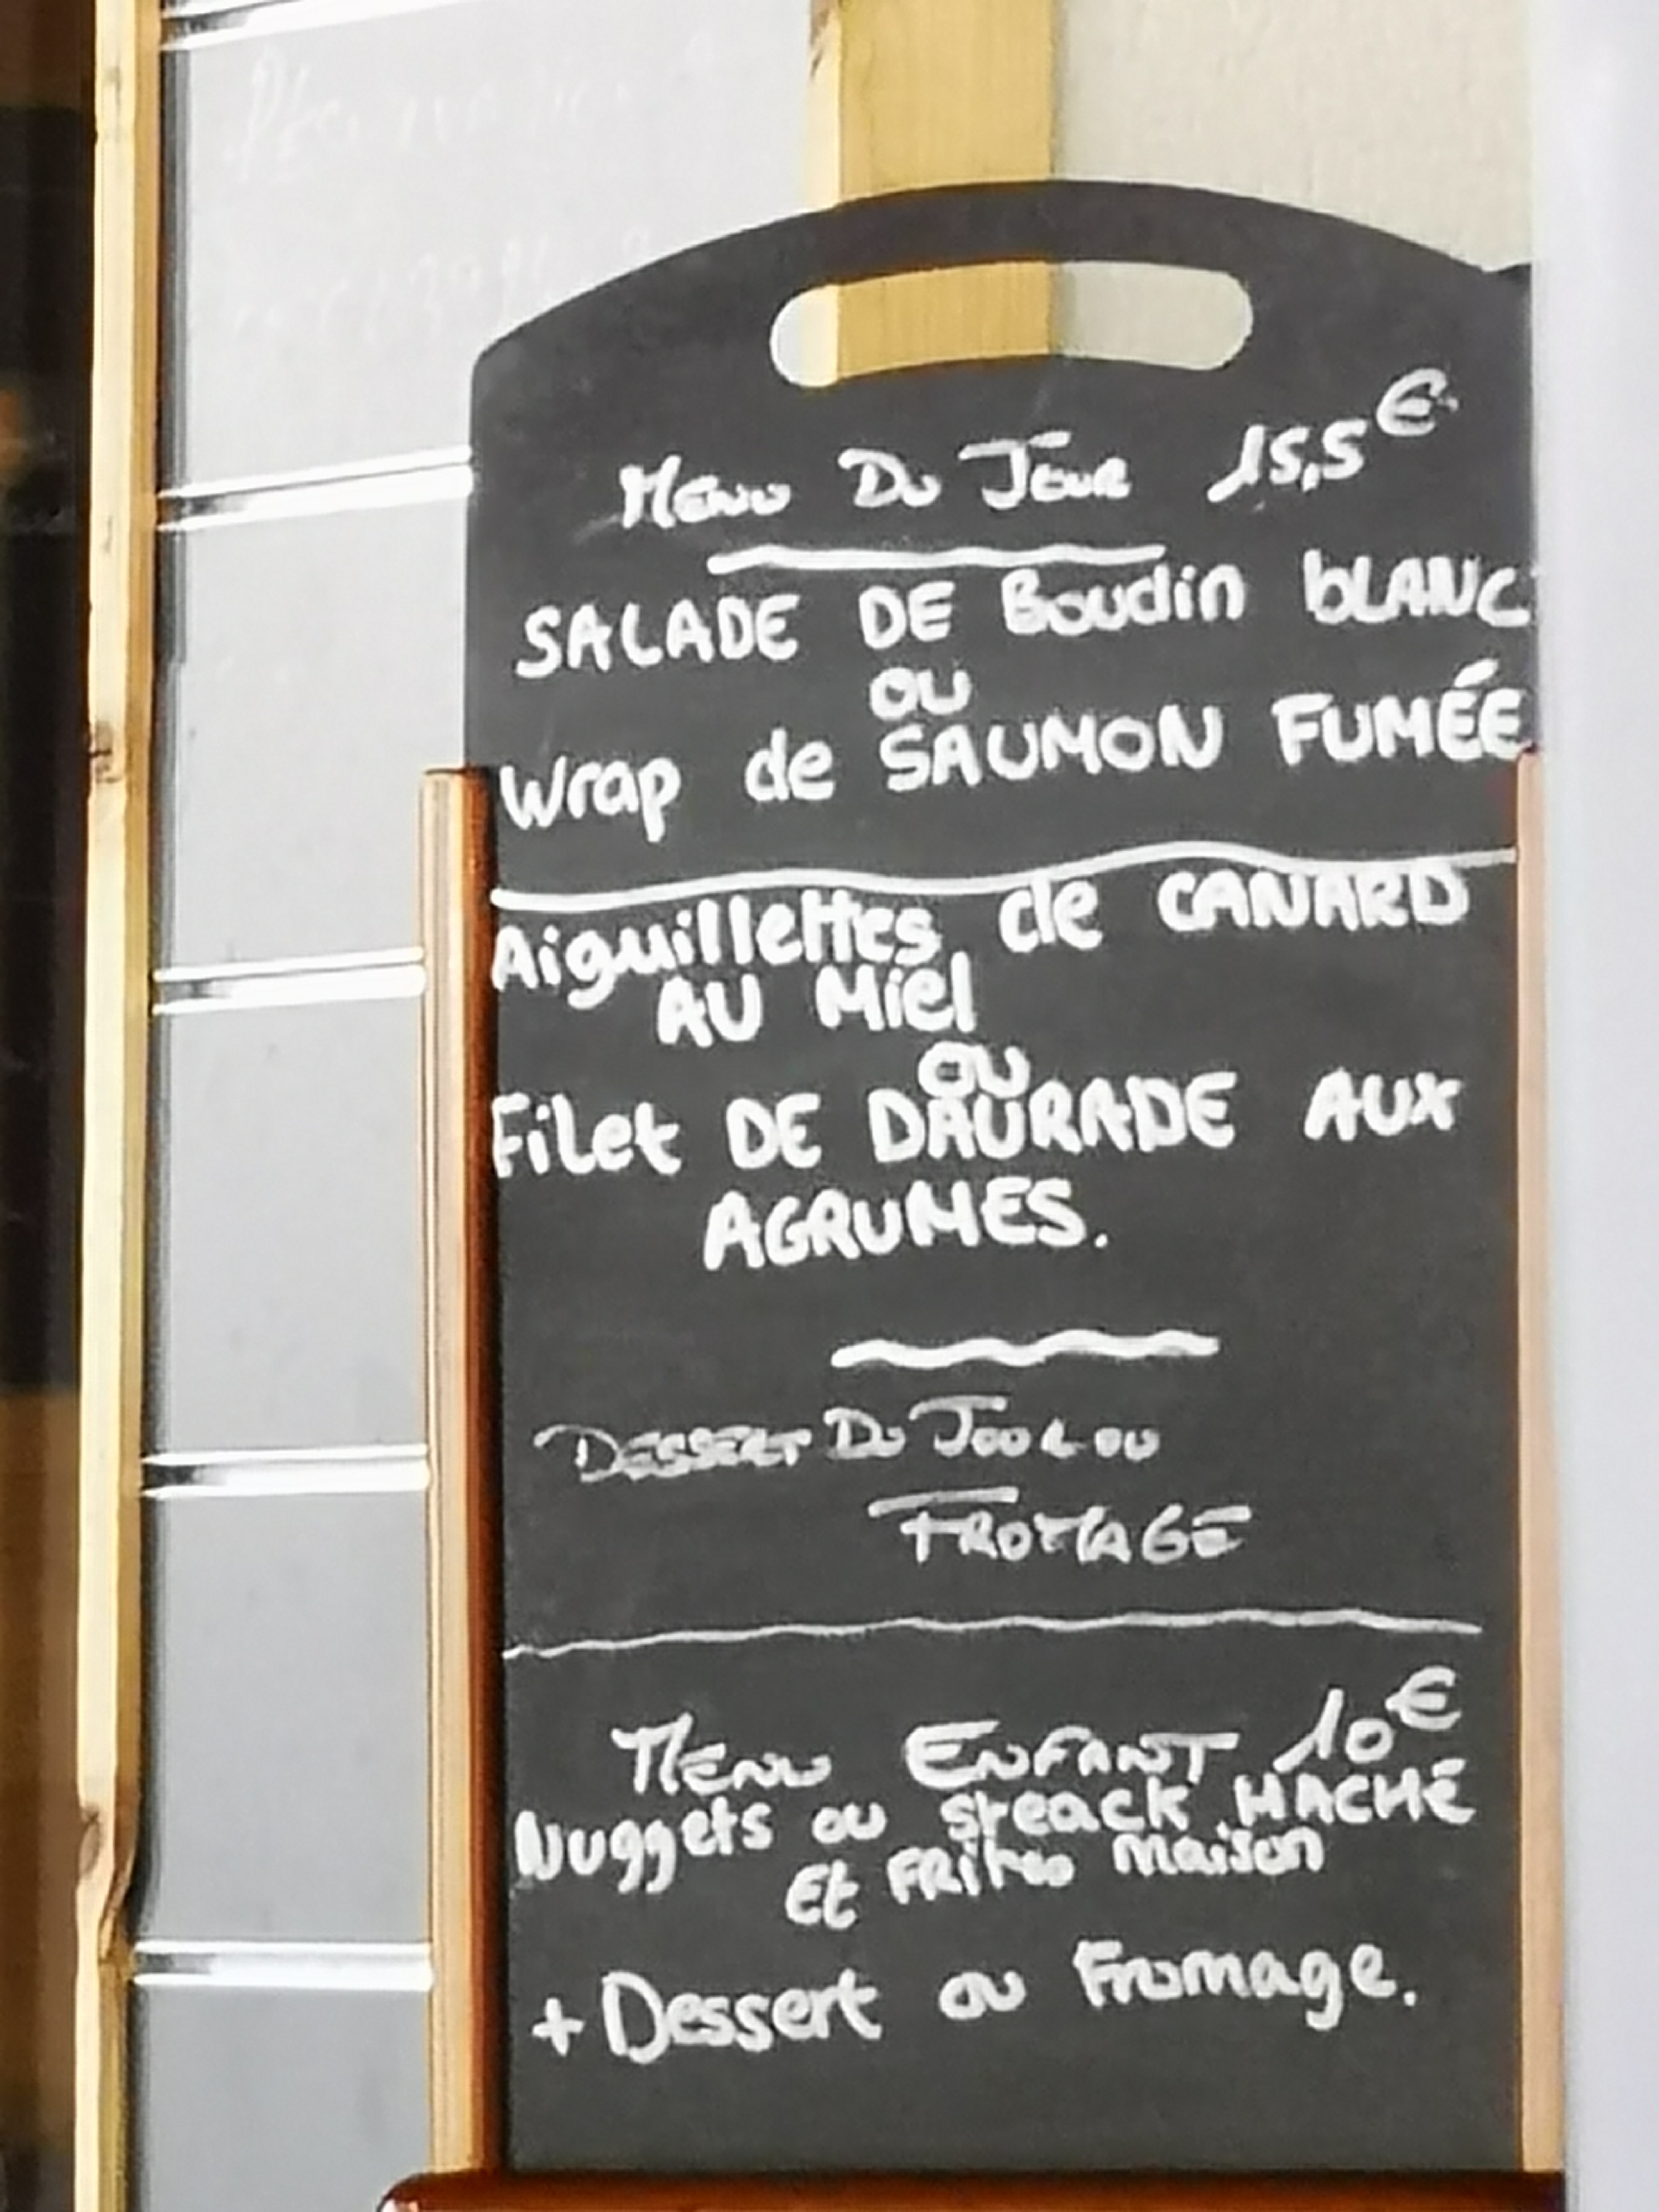 Menu Du Jour 15,5€
SALADE DE Boudin bLANC
ou
Wrap de SAUMON FUMÉE
Aiguillettes de CANARD
AU Miel
ou
Filet DE DAURADE AUX
AGRUMES.
DESSERT DU JOUR OU
FROMAGE
MENU ENFANT 10€
Nuggets ou steack HACHÉ
Et FRites maison
+ Dessert ou Fromage.